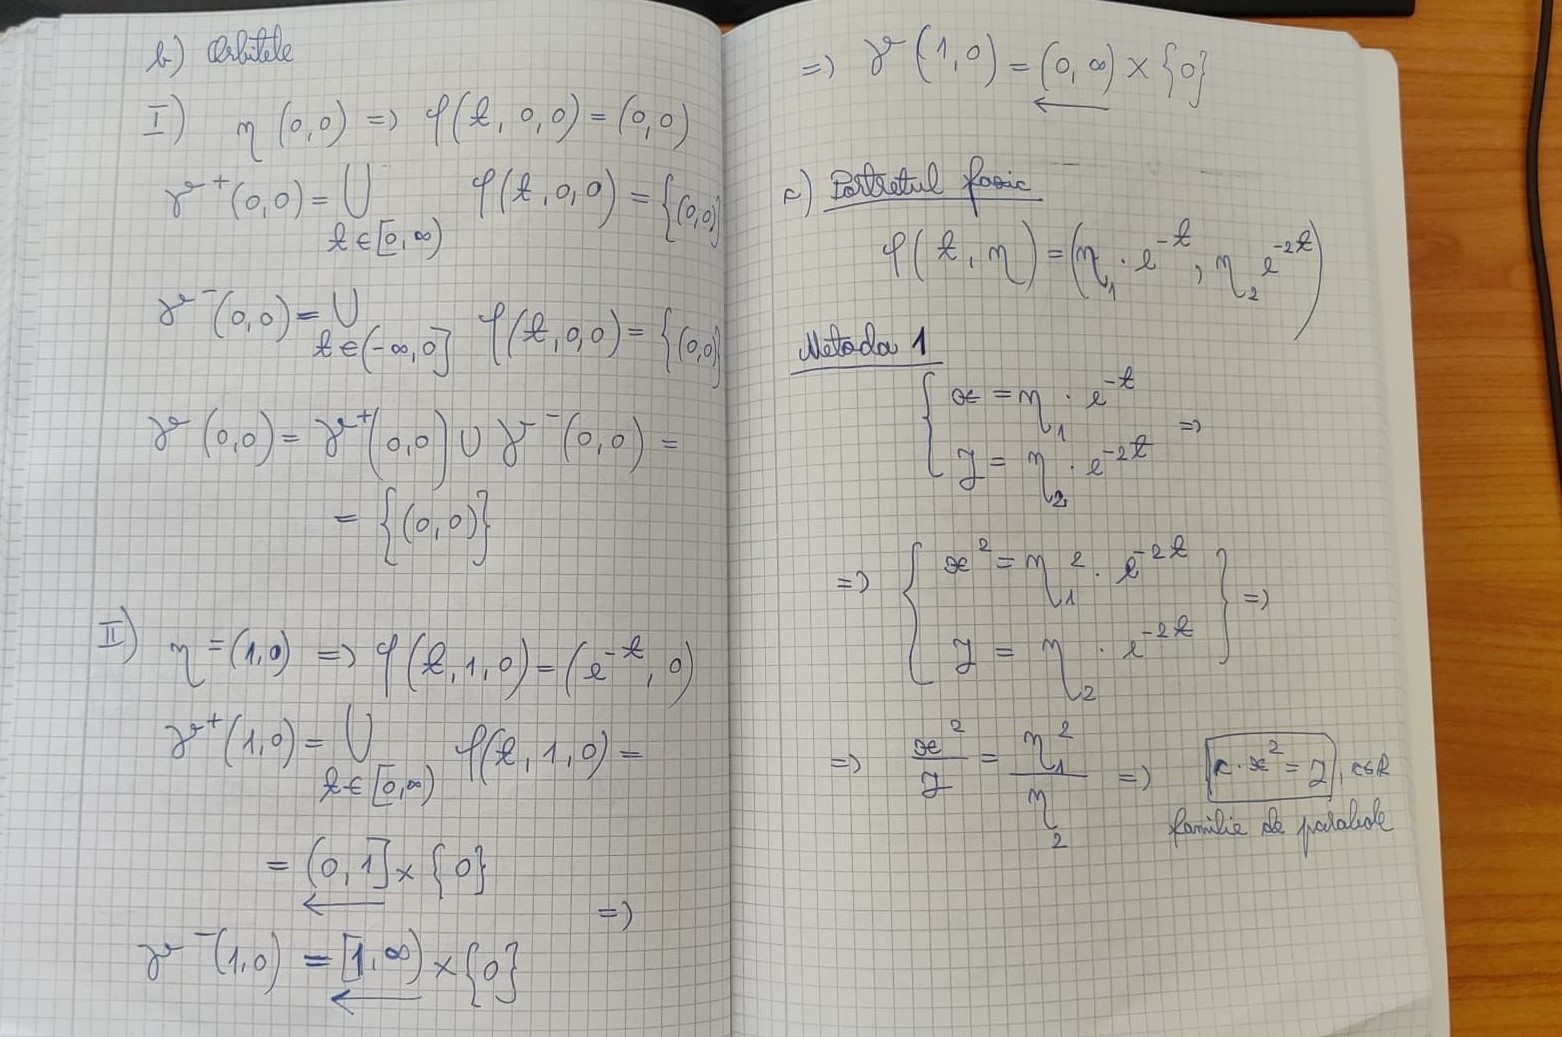 b) Orbitele
I) η (0,0) => φ(t, 0, 0) = (0,0)
γ⁺(0,0) = ∪ φ(t, 0, 0) = {(0,0)
t ∈ [0, ∞)
γ⁻(0,0) = ∪ φ(t, 0, 0) = {(0,0)
t ∈ (-∞, 0]
γ (0,0) = γ⁺(0,0) ∪ γ⁻(0,0) =
= {(0,0)}
II) η = (1,0) => φ(t, 1, 0) = (e^{-t}, 0)
γ⁺(1,0) = ∪ φ(t, 1, 0) =
t ∈ [0, ∞)
= (0, 1] × {0}
=>
γ⁻(1,0) = [1, ∞) × {0}
=> γ (1,0) = (0, ∞) × {0}
c) Portretul fazic
φ(t, η) = (η₁ · e^{-t}, η₂ e^{-2t})
Metoda 1
{ x = η₁ · e^{-t}
=>
y = η₂ · e^{-2t}
=> { x² = η₁² · e^{-2t} } =>
y = η₂ · e^{-2t}
=> x²/y = η₁²/η₂ => c · x² = y, c∈R
familie de parabole